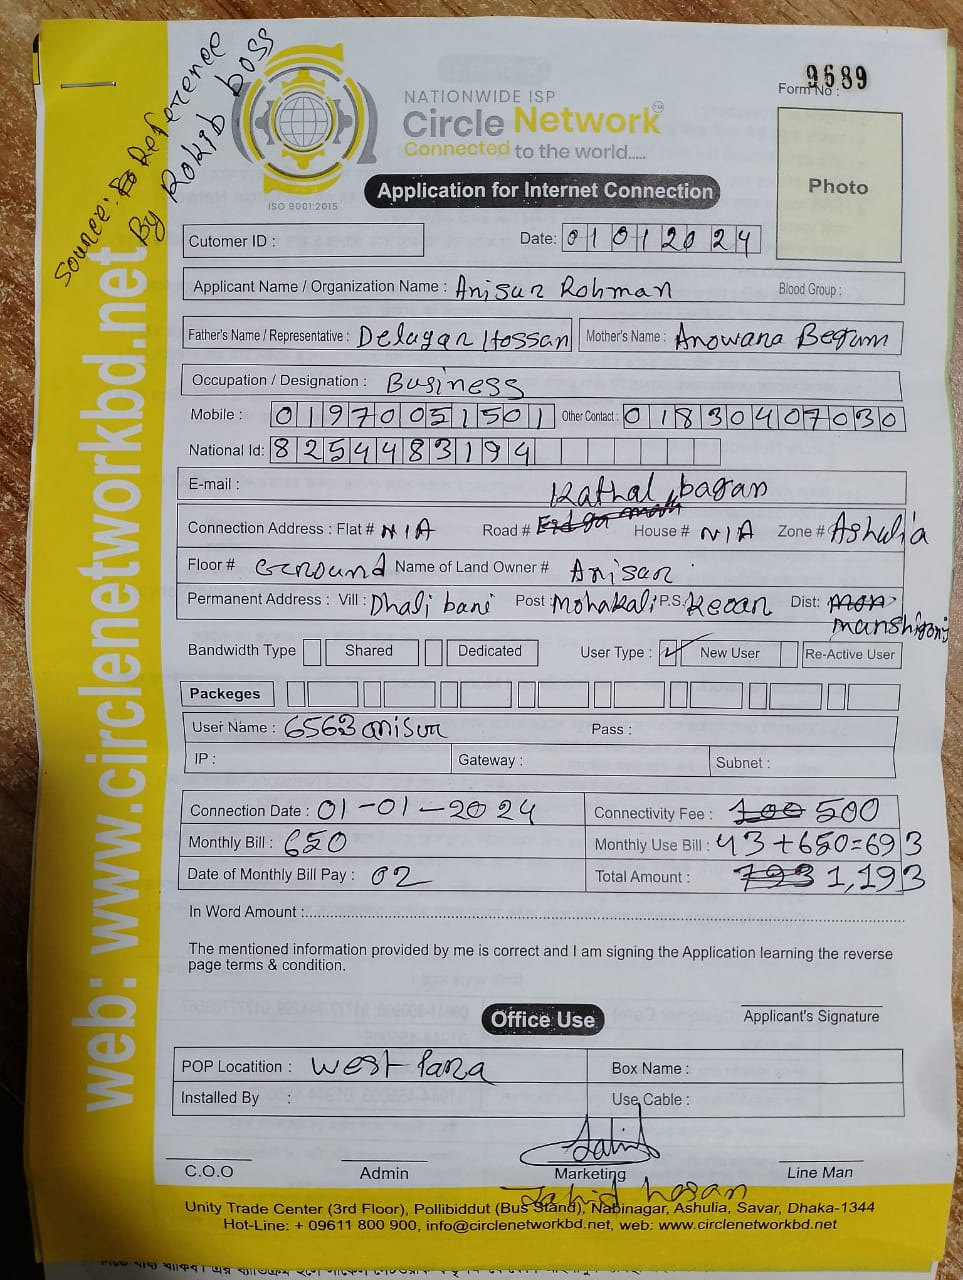 Source: Reference
By Rokib boss
NATIONWIDE ISP
Circle Network
Connected to the world.....
ISO 9001:2015
Form No : 9689
Photo
Application for Internet Connection
Cutomer ID :
Date: 01012024
Applicant Name / Organization Name : Anisur Rohman Blood Group :
Father's Name / Representative : Delagar Hossan Mother's Name : Anowara Begum
Occupation / Designation : Business
Mobile : 01970051501 Other Contact : 01830407030
National Id: 8254483194
E-mail :
Kathal bagan
Connection Address : Flat # N/A Road # House # N/A Zone # Ashulia
Floor # Ground Name of Land Owner # Anisar
Permanent Address : Vill : Dhali bari Post : Mohakali P.S. Dist:
Manshigonj
Bandwidth Type Shared Dedicated User Type : ✓ New User Re-Active User
Packeges
User Name : 6563anisur Pass :
IP : Gateway : Subnet :
Connection Date : 01-01-2024 Connectivity Fee : 100 500
Monthly Bill : 650 Monthly Use Bill : 43+650=693
Date of Monthly Bill Pay : 02 Total Amount : 793 1,193
In Word Amount :
The mentioned information provided by me is correct and I am signing the Application learning the reverse
page terms & condition.
Applicant's Signature
Office Use
POP Locatition : West Para Box Name :
Installed By : Use Cable :
C.O.O Admin Marketing Line Man
Jahid hasan
Unity Trade Center (3rd Floor), Pollibiddut (Bus Stand), Nabinagar, Ashulia, Savar, Dhaka-1344
Hot-Line: + 09611 800 900, info@circlenetworkbd.net, web: www.circlenetworkbd.net
web: www.circlenetworkbd.net